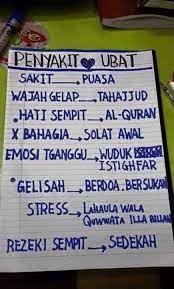 PENYAKIT ♥ UBAT
SAKIT → PUASA
WAJAH GELAP → TAHAJJUD
. HATI SEMPIT → AL-QURAN
X BAHAGIA → SOLAT AWAL
EMOSI TGANGGU → WUDUK
ISTIGHFAR
GELISAH → BERDOA, BERSUKAN
STRESS → LAHAULA WALA
QUWWATA ILLA BILLAH
REZEKI SEMPIT → SEDEKAH